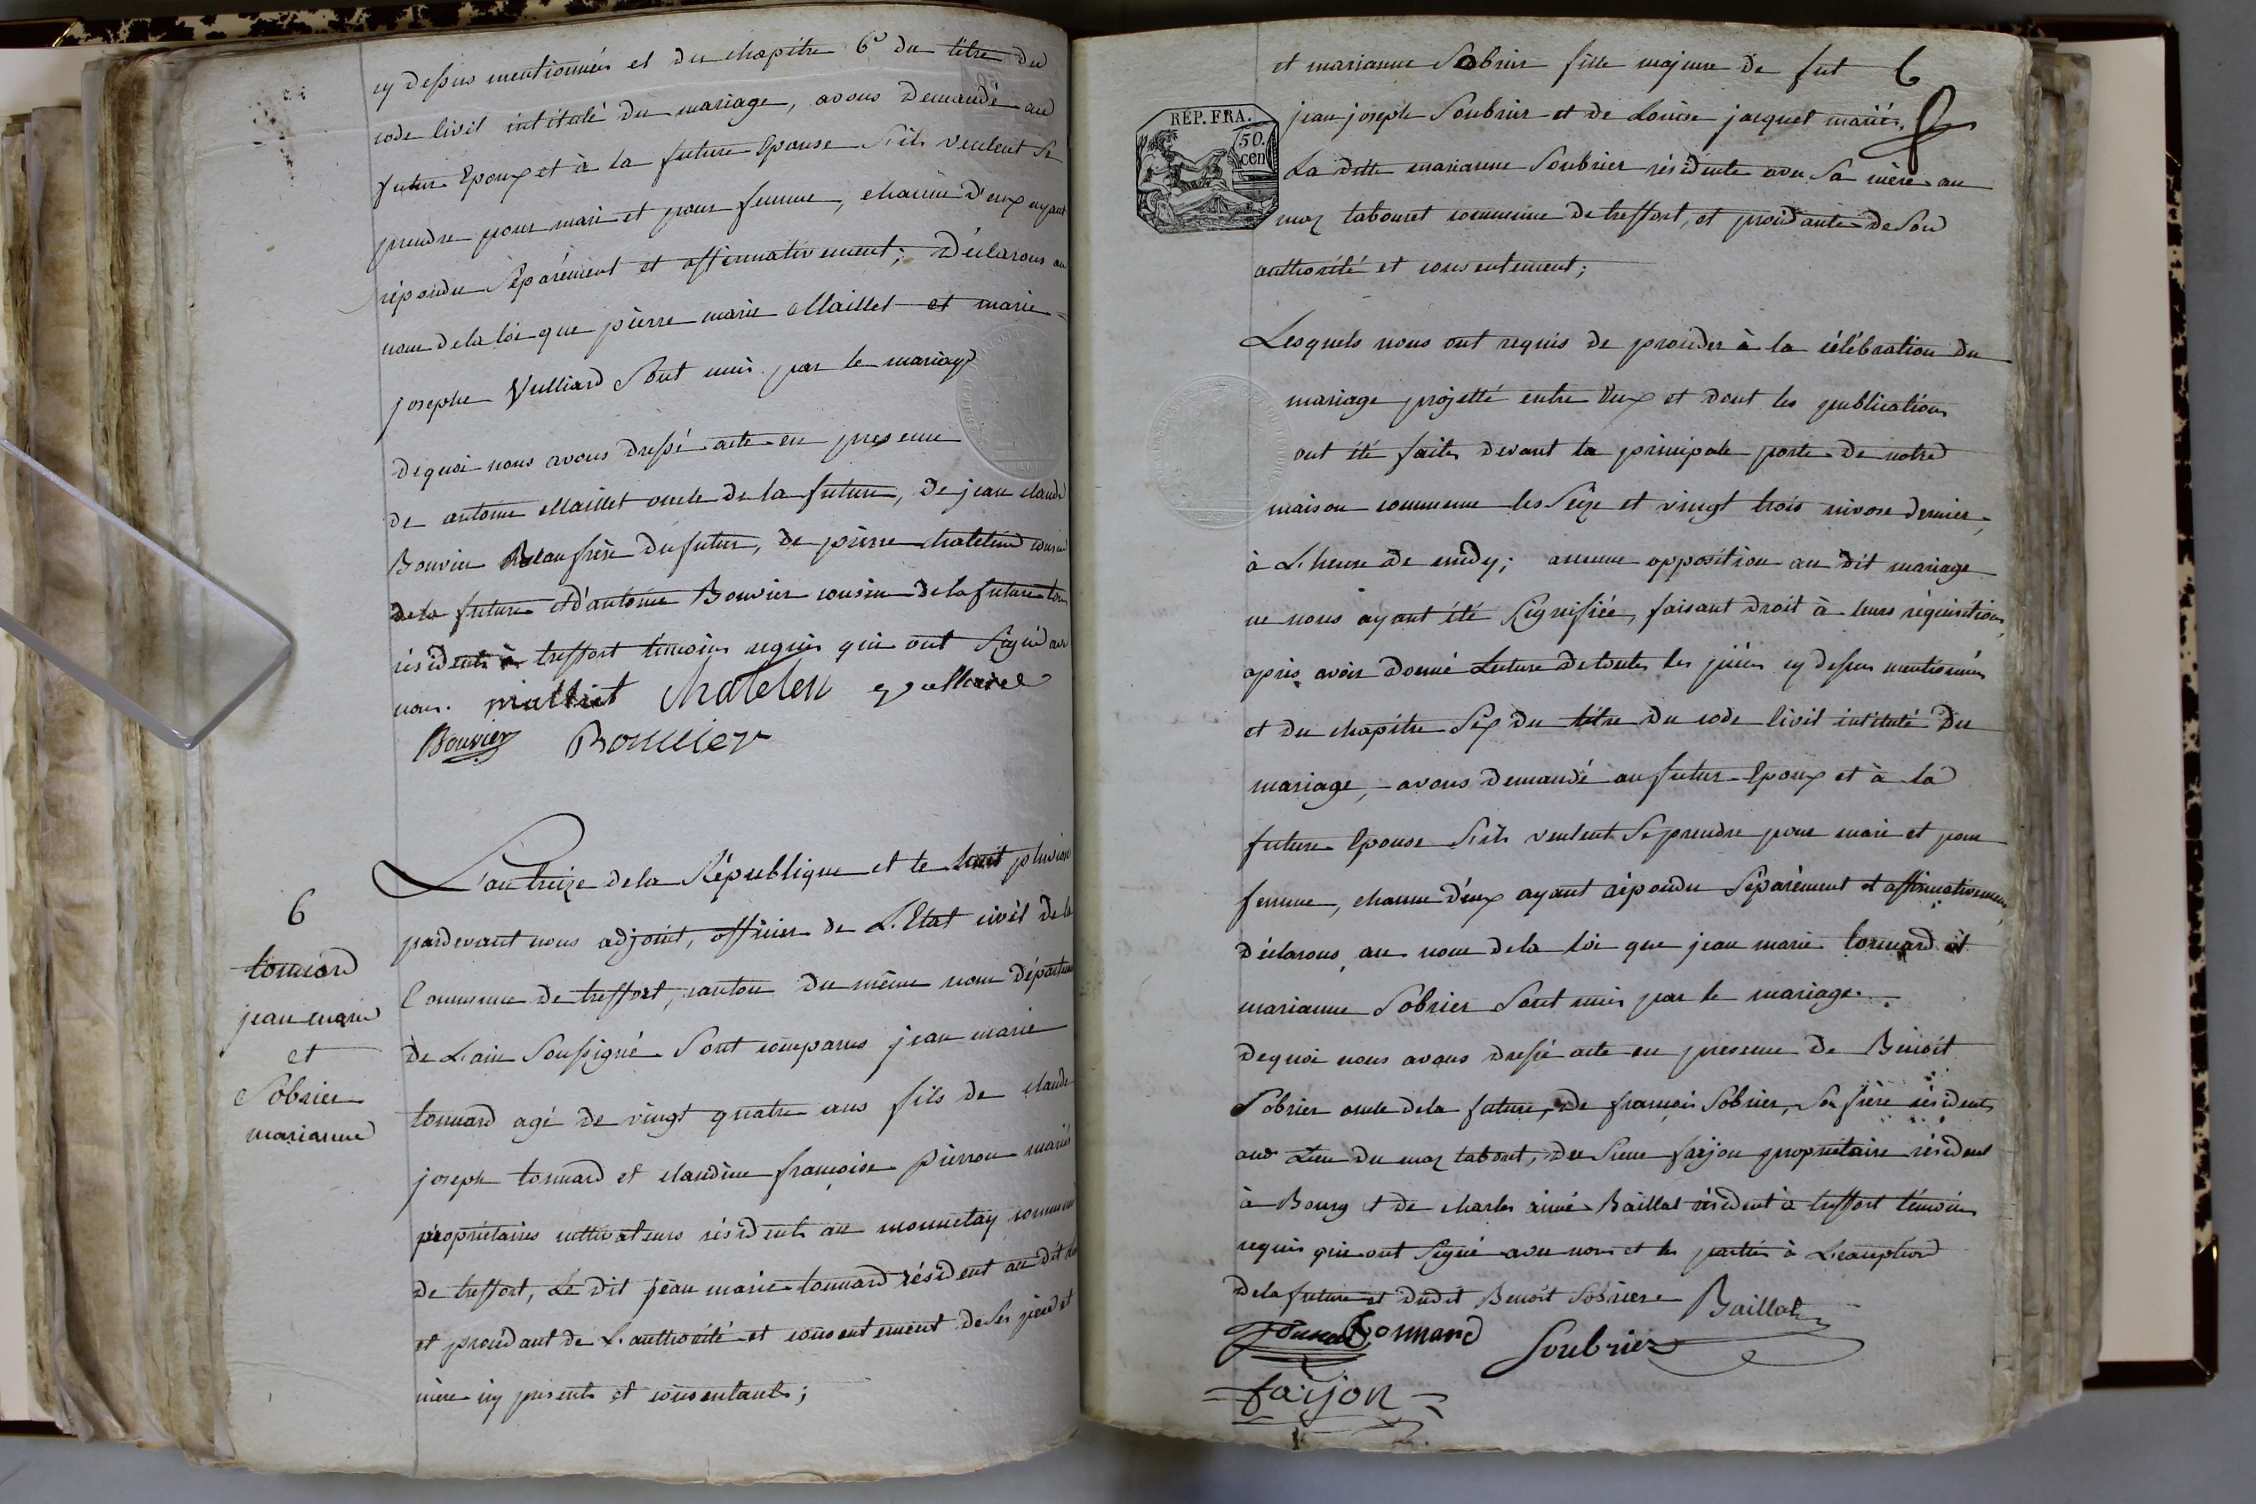 cy dessus mentionnées et du chapitre 6e du titre du
code Civil intitulé du mariage, avons demandé au
futur Epoux et à la future Epouse s'ils veulent se
prendre pour mari et pour femme, chacun d'eux ayant
répondu séparément et affirmativement; déclarons au
nom de la loi que pierre marie Maillet et marie
josephe Vulliard sont unis par le mariage
dequoi nous avons dressé acte en presence
de antoine Maillet oncle de la future, de jean claude
Bouvier Beaufrère du futur, de pierre chatelin cousin
de la future et d'antoine Bouvier cousin de la future tous
résidents à treffort témoins requis qui ont signé avec
nous. maillet Chatelen Vulliard
Bouvier Bouvier
6
tonnard
jean marie
et
Sobrier
marianne
L'an treize de la République et le huit pluviose
pardevant nous adjoint, officier de L'Etat civil de la
Commune de treffort, canton du même nom départem
de L'ain soussigné sont comparus jean marie
tonnard agé de vingt quatre ans fils de claude
joseph tonnard et claudine françoise pierron mariés
propriétaires cultivateurs résidents au monnetay commune
de treffort, Le dit jean marie tonnard résident au dit
et procédant de L'authorité et consentement de ses père et
mère icy presents et consentants;
6
RÉP. FRA.
50.
cen
et marianne Sobrier fille majeure de fut
jean joseph Soubrier et de Louise jacquet mariés,
La ditte marianne Soubrier résidente avec sa mère au
maz tabouret commune de treffort, et procédante de son
authorité et consentement;
Lesquels nous ont requis de procéder à la célébration du
mariage projetté entre Eux et dont les publications
ont été faites devant la principale porte de notre
maison commune les seize et vingt trois nivose dernier,
à L'heure de midy; aucune opposition au dit mariage
ne nous ayant été signifiée, faisant droit à leurs réquisitions,
après avoir donné Lecture de toutes les pièces cy dessus mentionnées
et du chapitre six du titre du code Civil intitulé du
mariage, avons demandé au futur Epoux et à la
future Epouse s'ils veulent se prendre pour mari et pour
femme, chacun d'eux ayant répondu séparément et affirmativement,
déclarons, au nom de la loi que jean marie tonnard et
marianne Sobrier sont unis par le mariage.
dequoi nous avons dressé acte en presence de Benoit
Sobrier oncle de la future, de françois Sobrier, son frère résidents
au Lieu du maz tabout, du sieur farjon propriétaire résident
à Bourg et de charles aimé Baillat résident à treffort témoins
requis qui ont signé avec nous et les parties à L'exception
de la future et dudit Benoit Sobrier Baillat
tonnard Soubrier
farjon